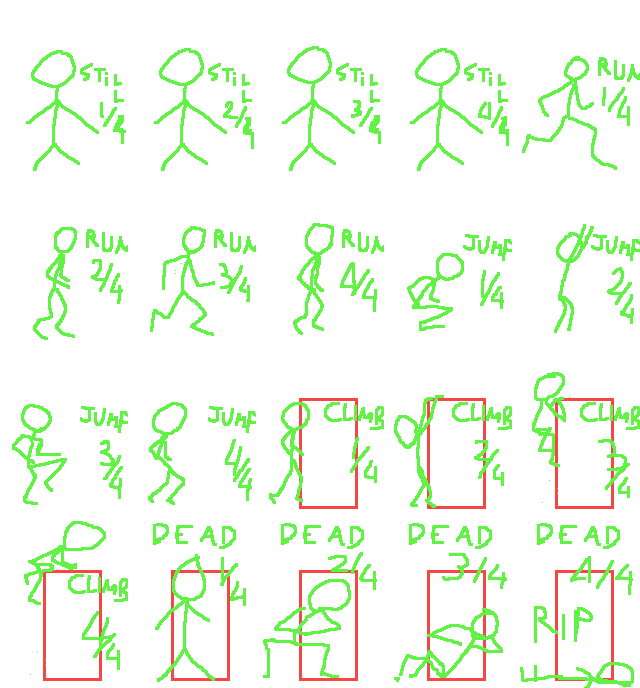 STiL
L
1/4
STiL
L
2/4
STiL
L
3/4
STiL
L
4/4
RUN
1/4
RUN
2/4
RUN
3/4
RUN
4/4
JUMP
1/4
JUMP
2/4
JUMP
3/4
JUMP
4/4
CLIMB
1/4
CLIMB
2/4
CLIMB
3/4
CLIMB
4/4
DEAD
1/4
DEAD
2/4
DEAD
3/4
DEAD
4/4
RIP